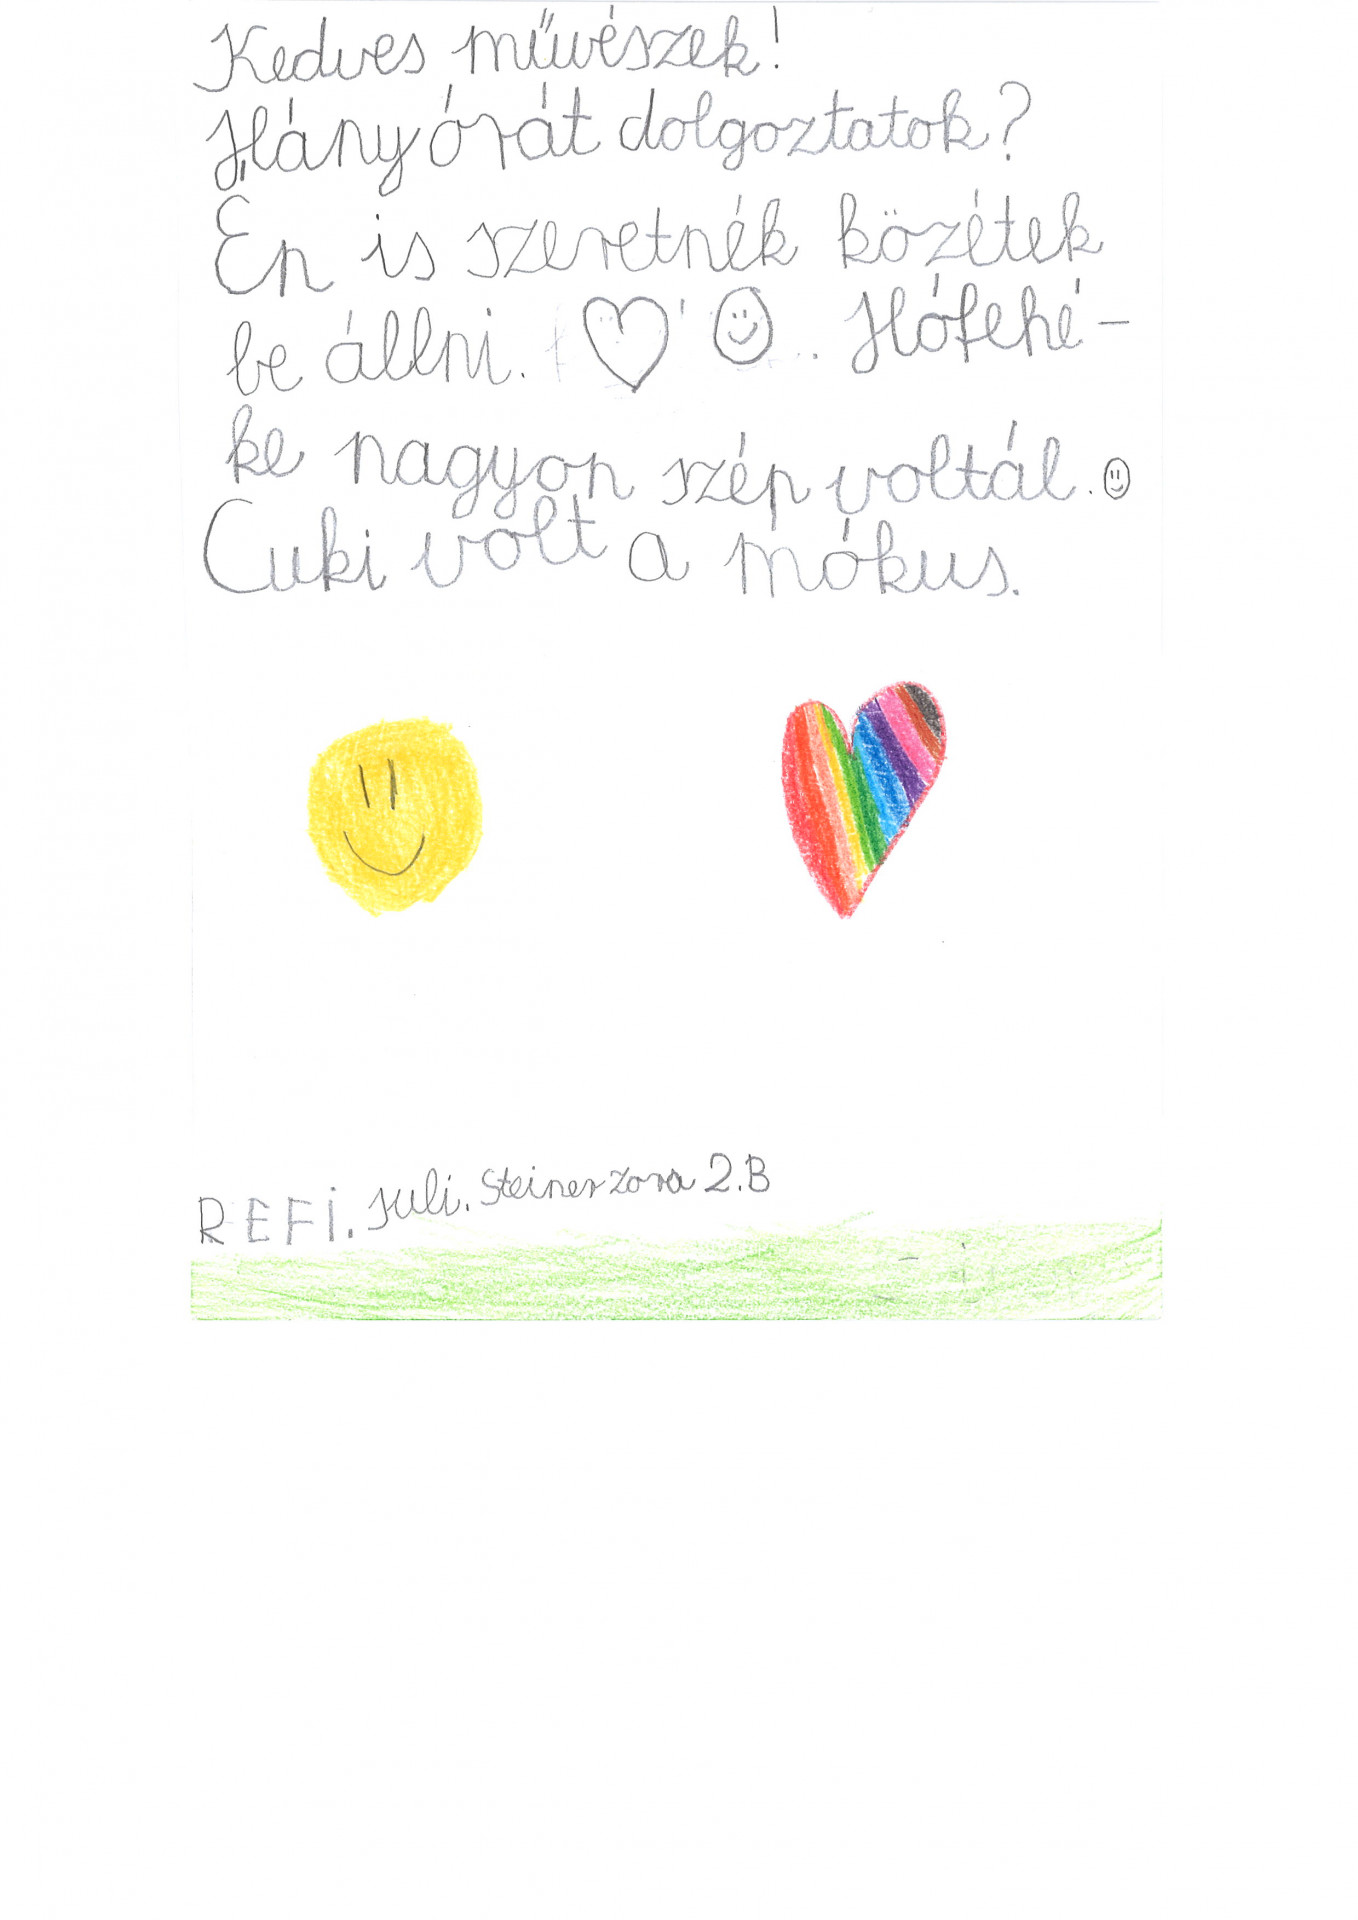 Kedves művészek!
Hány órát dolgoztatok?
Én is szeretnék közétek
be állni. Hófehé-
ke nagyon szép voltál.
Cuki volt a mókus.
REFI. Juli. Steiner Zora 2.B